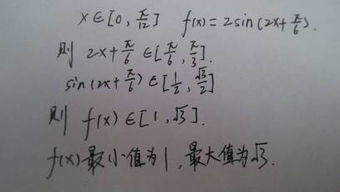 x∈[0, π/12]  f(x)=2sin(2x+π/6).
则 2x+π/6∈[π/6, π/3].
sin(2x+π/6)∈[1/2, √3/2]
则 f(x)∈[1, √3].
f(x)最小值为1, 最大值为√3.